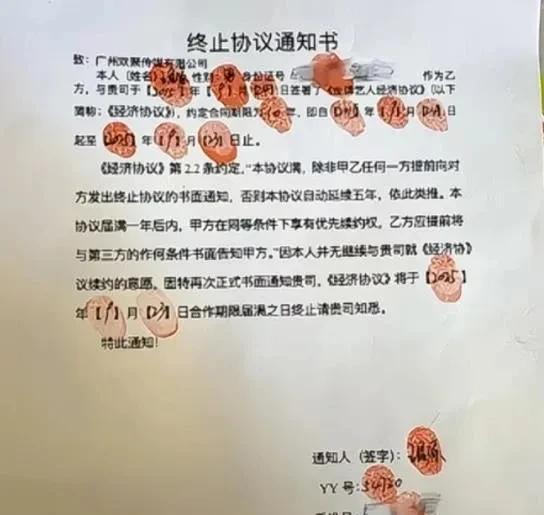 终止协议通知书
致：广州双聚传媒有限公司
本人（姓名） 性别：男 身份证号 作为乙
方，与贵司于【2015】年【9】月 日签署了《 艺人经济协议》（以下
简称：《经济协议》），约定合同期限为10年，即自 年 月 日
起至【2025】年【9】月【23】日止。
《经济协议》第2.2条约定，“本协议满，除非甲乙任何一方提前向对
方发出终止协议的书面通知，否则本协议自动延续五年，依此类推。本
协议届满一年后内，甲方在同等条件下享有优先续约权。乙方应提前将
与第三方的作何条件书面告知甲方。”因本人并无继续与贵司就《经济协》
议续约的意愿。固特再次正式书面通知贵司，《经济协议》将于【2025】
年【9】月【23】日合作期限届满之日终止请贵司知悉。
特此通知！
通知人（签字）：
YY号：54720